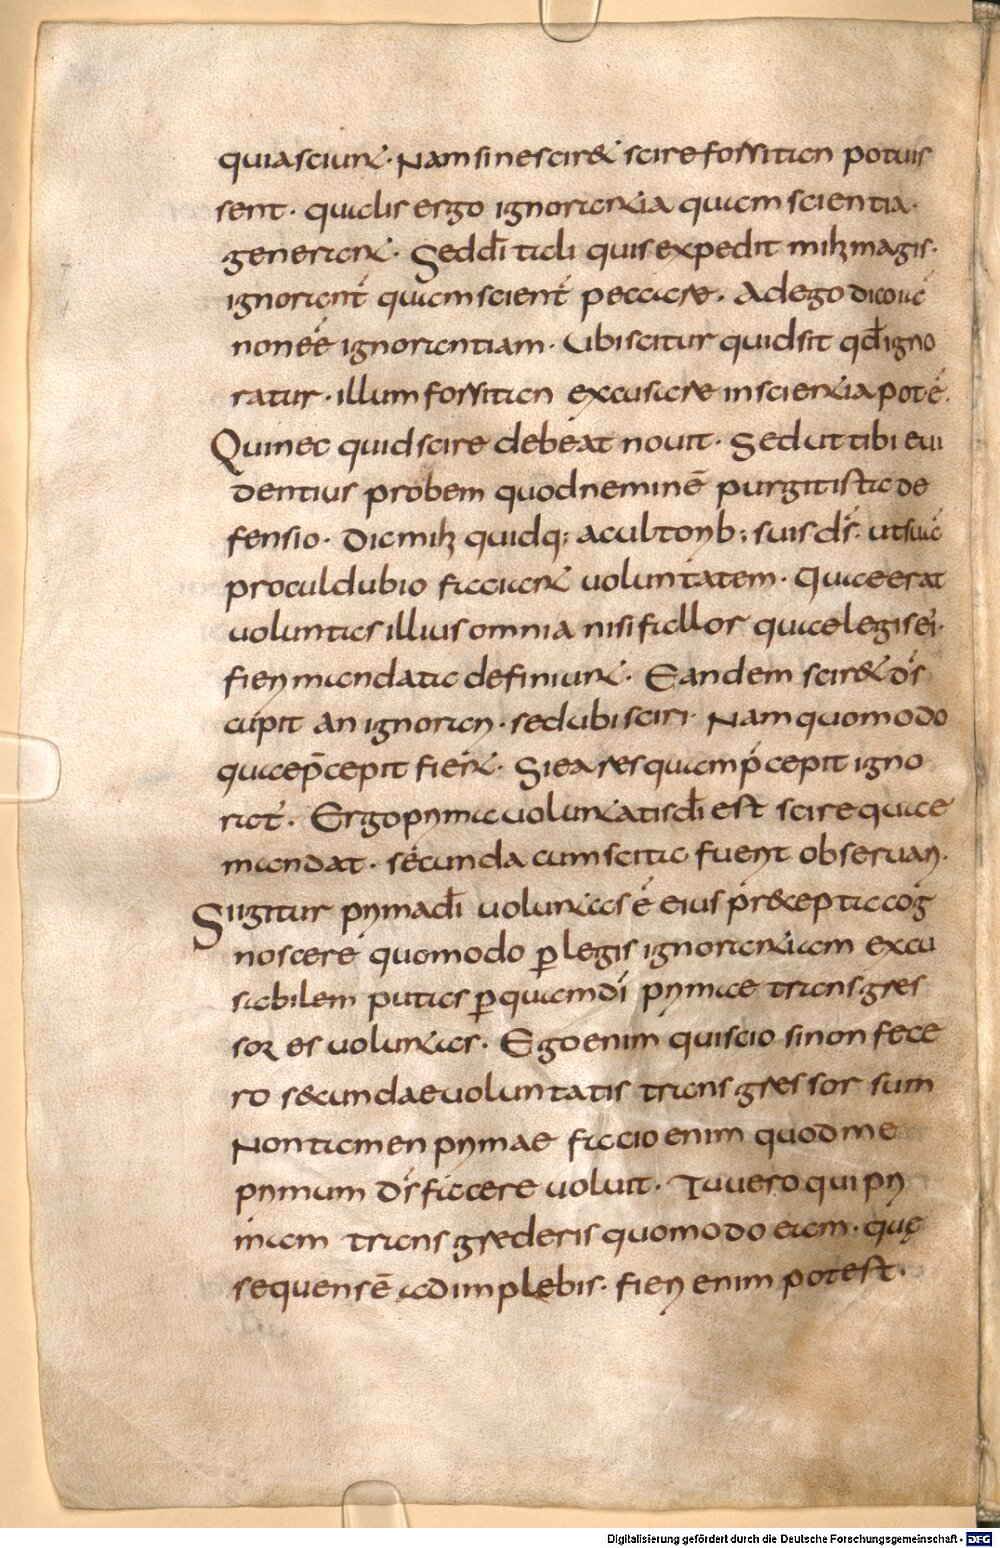 quia sciunt. Nam si nescirent scire forsitan potuis
sent. qualis ergo ignorantia quam scientia.
generant. Sed dicit tali quis expedit mihi magis.
ignorant̄ quam scient̄ peccare. Ad ego dico
non eē ignorantiam. Ubi scitur quid sit qd̄ igno
ratur. illum forsitan excusare inscientia potē.
Qui nec quid scire debeat novit. Sed ut tibi evi
dentius probem quod neminē purget ista de
fensio. Dic mihi quid q; a cultorib; suis ds̄. ut suā
proculdubio faciant voluntatem. Quae erat
voluntas illius omnia nisi fallor quae legis ei.
fieri mandata definiunt. Eandem sciret ds̄
cupit an ignorari. sed ubi sciri. Nam quomodo
quae p̄cepit fient. Si ea res quam p̄cepit igno
ret̄. Ergo prima voluntatis dī est scire quae
mandat. secunda cum scita fuerit observari.
Si igitur prima dī voluntas ē eius praecepta cog
noscere quomodo p̱ legis ignorantiam excu
sabilem putas p̱ quam dī primae transgres
sor es voluntas. Ego enim qui scio si non fece
ro secundae voluntatis transgressor sum
Non tamen primae facio enim quod me
primum ds̄ facere voluit. Tu vero qui pri
mam transgrederis quomodo eam. quę
sequens ē adimplebis. fieri enim potest.
Digitalisierung gefördert durch die Deutsche Forschungsgemeinschaft - DFG